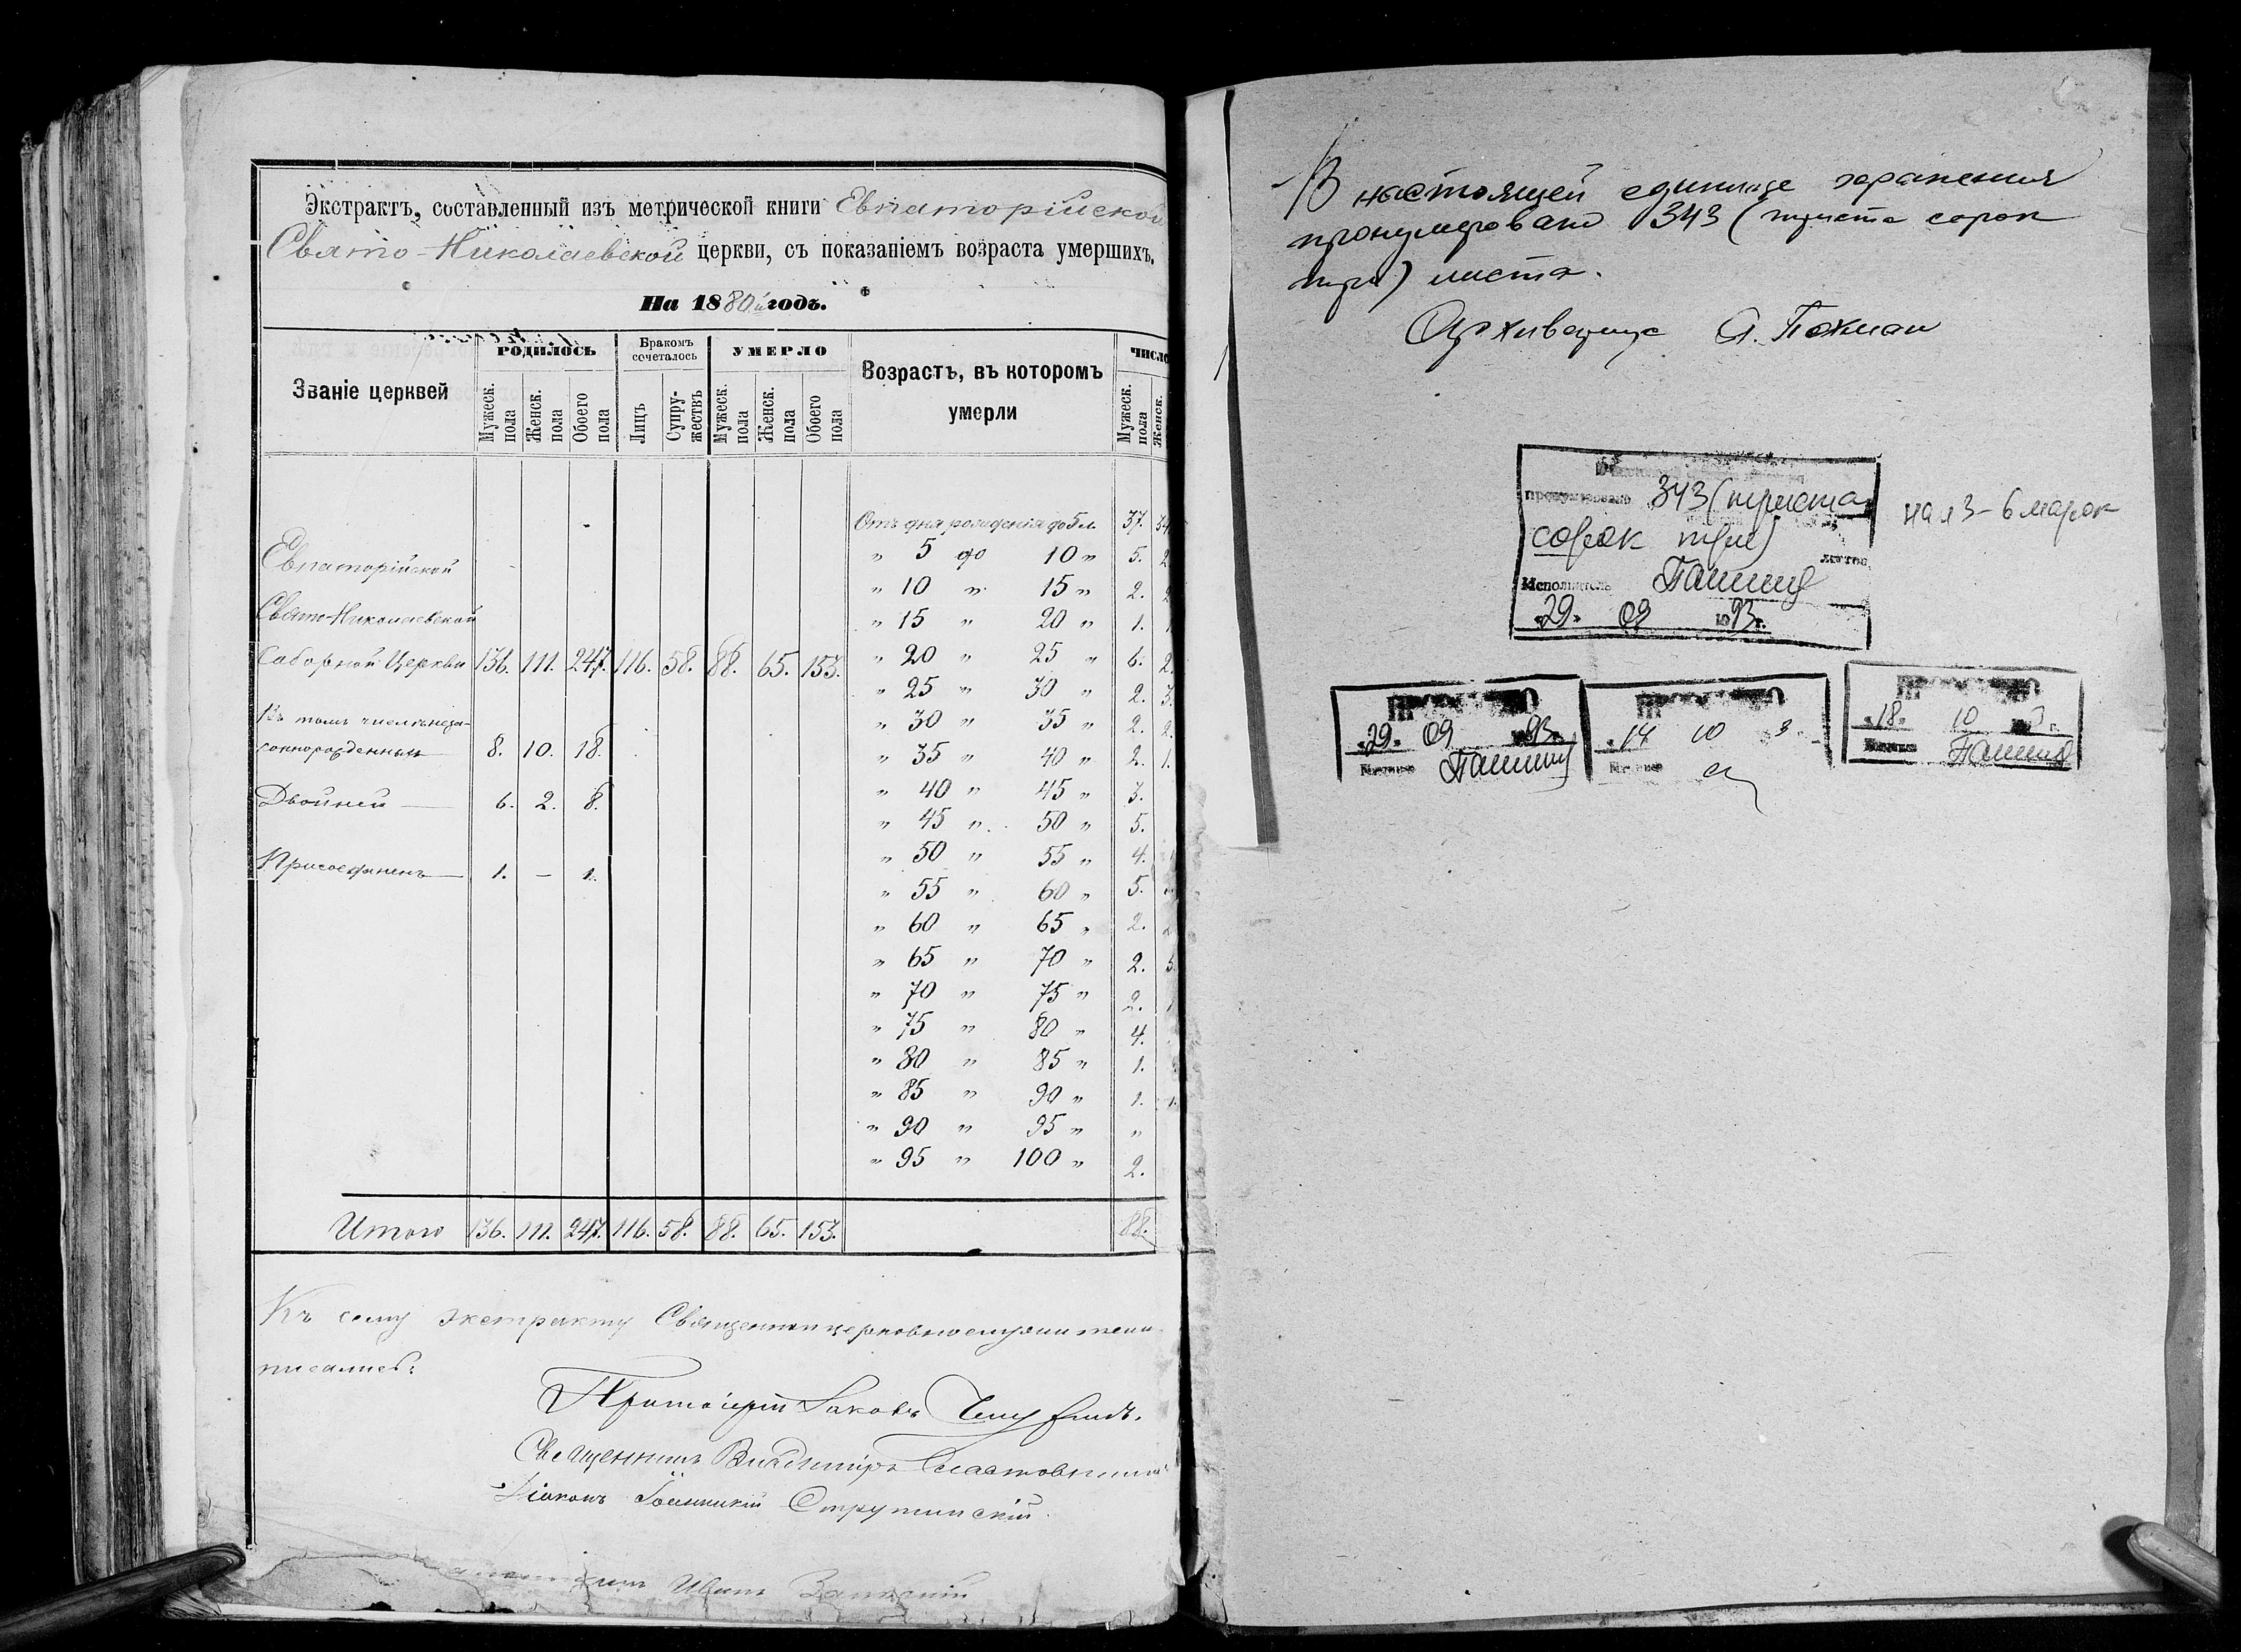 Экстрактъ, составленный изъ метрической книги Евпаторійской
Свято-Николаевской церкви, съ показаніемъ возраста умершихъ.
На 1880й годъ.
Званіе церквей
РОДИЛОСЬ
Бракомъ сочеталось
УМЕРЛО
Возрастъ, въ которомъ умерли
ЧИСЛО
Мужеск. пола
Женск. пола
Обоего пола
Лицъ
Супружествъ
Мужеск. пола
Женск. пола
Обоего пола
Мужеск. пола
Женск.
Отъ дня рожденія до 5 л. 37. 34
" 5 до 10 " 5. 2
Евпаторійской
" 10 " 15 " 2. 2
Свято-Николаевской
" 15 " 20 " 1. 1
Соборной Церкви 136. 111. 247. 116. 58. 88. 65. 153.
" 20 " 25 " 6. 2.
" 25 " 30 " 2. 3.
Въ томъ числѣ неза-
" 30 " 35 " 2. 2.
коннорожденныхъ 8. 10. 18.
" 35 " 40 " 2. 1.
Двойней — 6. 2. 8.
" 40 " 45 " 3.
" 45 " 50 " 5.
" 50 " 55 " 4.
Присоединенъ — 1. — 1.
" 55 " 60 " 5.
" 60 " 65 " 2.
" 65 " 70 " 2. 5.
" 70 " 75 " 2. 1
" 75 " 80 " 4.
" 80 " 85 " 1.
" 85 " 90 " 1. 1.
" 90 " 95 " "
" 95 " 100 " 2.
Итого 136. 111. 247. 116. 58. 88. 65. 153. 88.
Къ сему экстракту Священноцерковнослужители
писались:
Протоіерей Іаковъ
Священникъ Владиміръ
Діаконъ Іоанникій Струтинскій.
Иванъ
В настоящей единице хранения
пронумеровано 343 (триста сорок
три) листа.
Архивариус Я. Пекман
пронумеровано 343 (триста
сорок три)
листов
Исполнитель
"29" 09 1993г.
на л 3 - 6 марок
"29" 09 1993г.
"14" 10 3
"18" 10